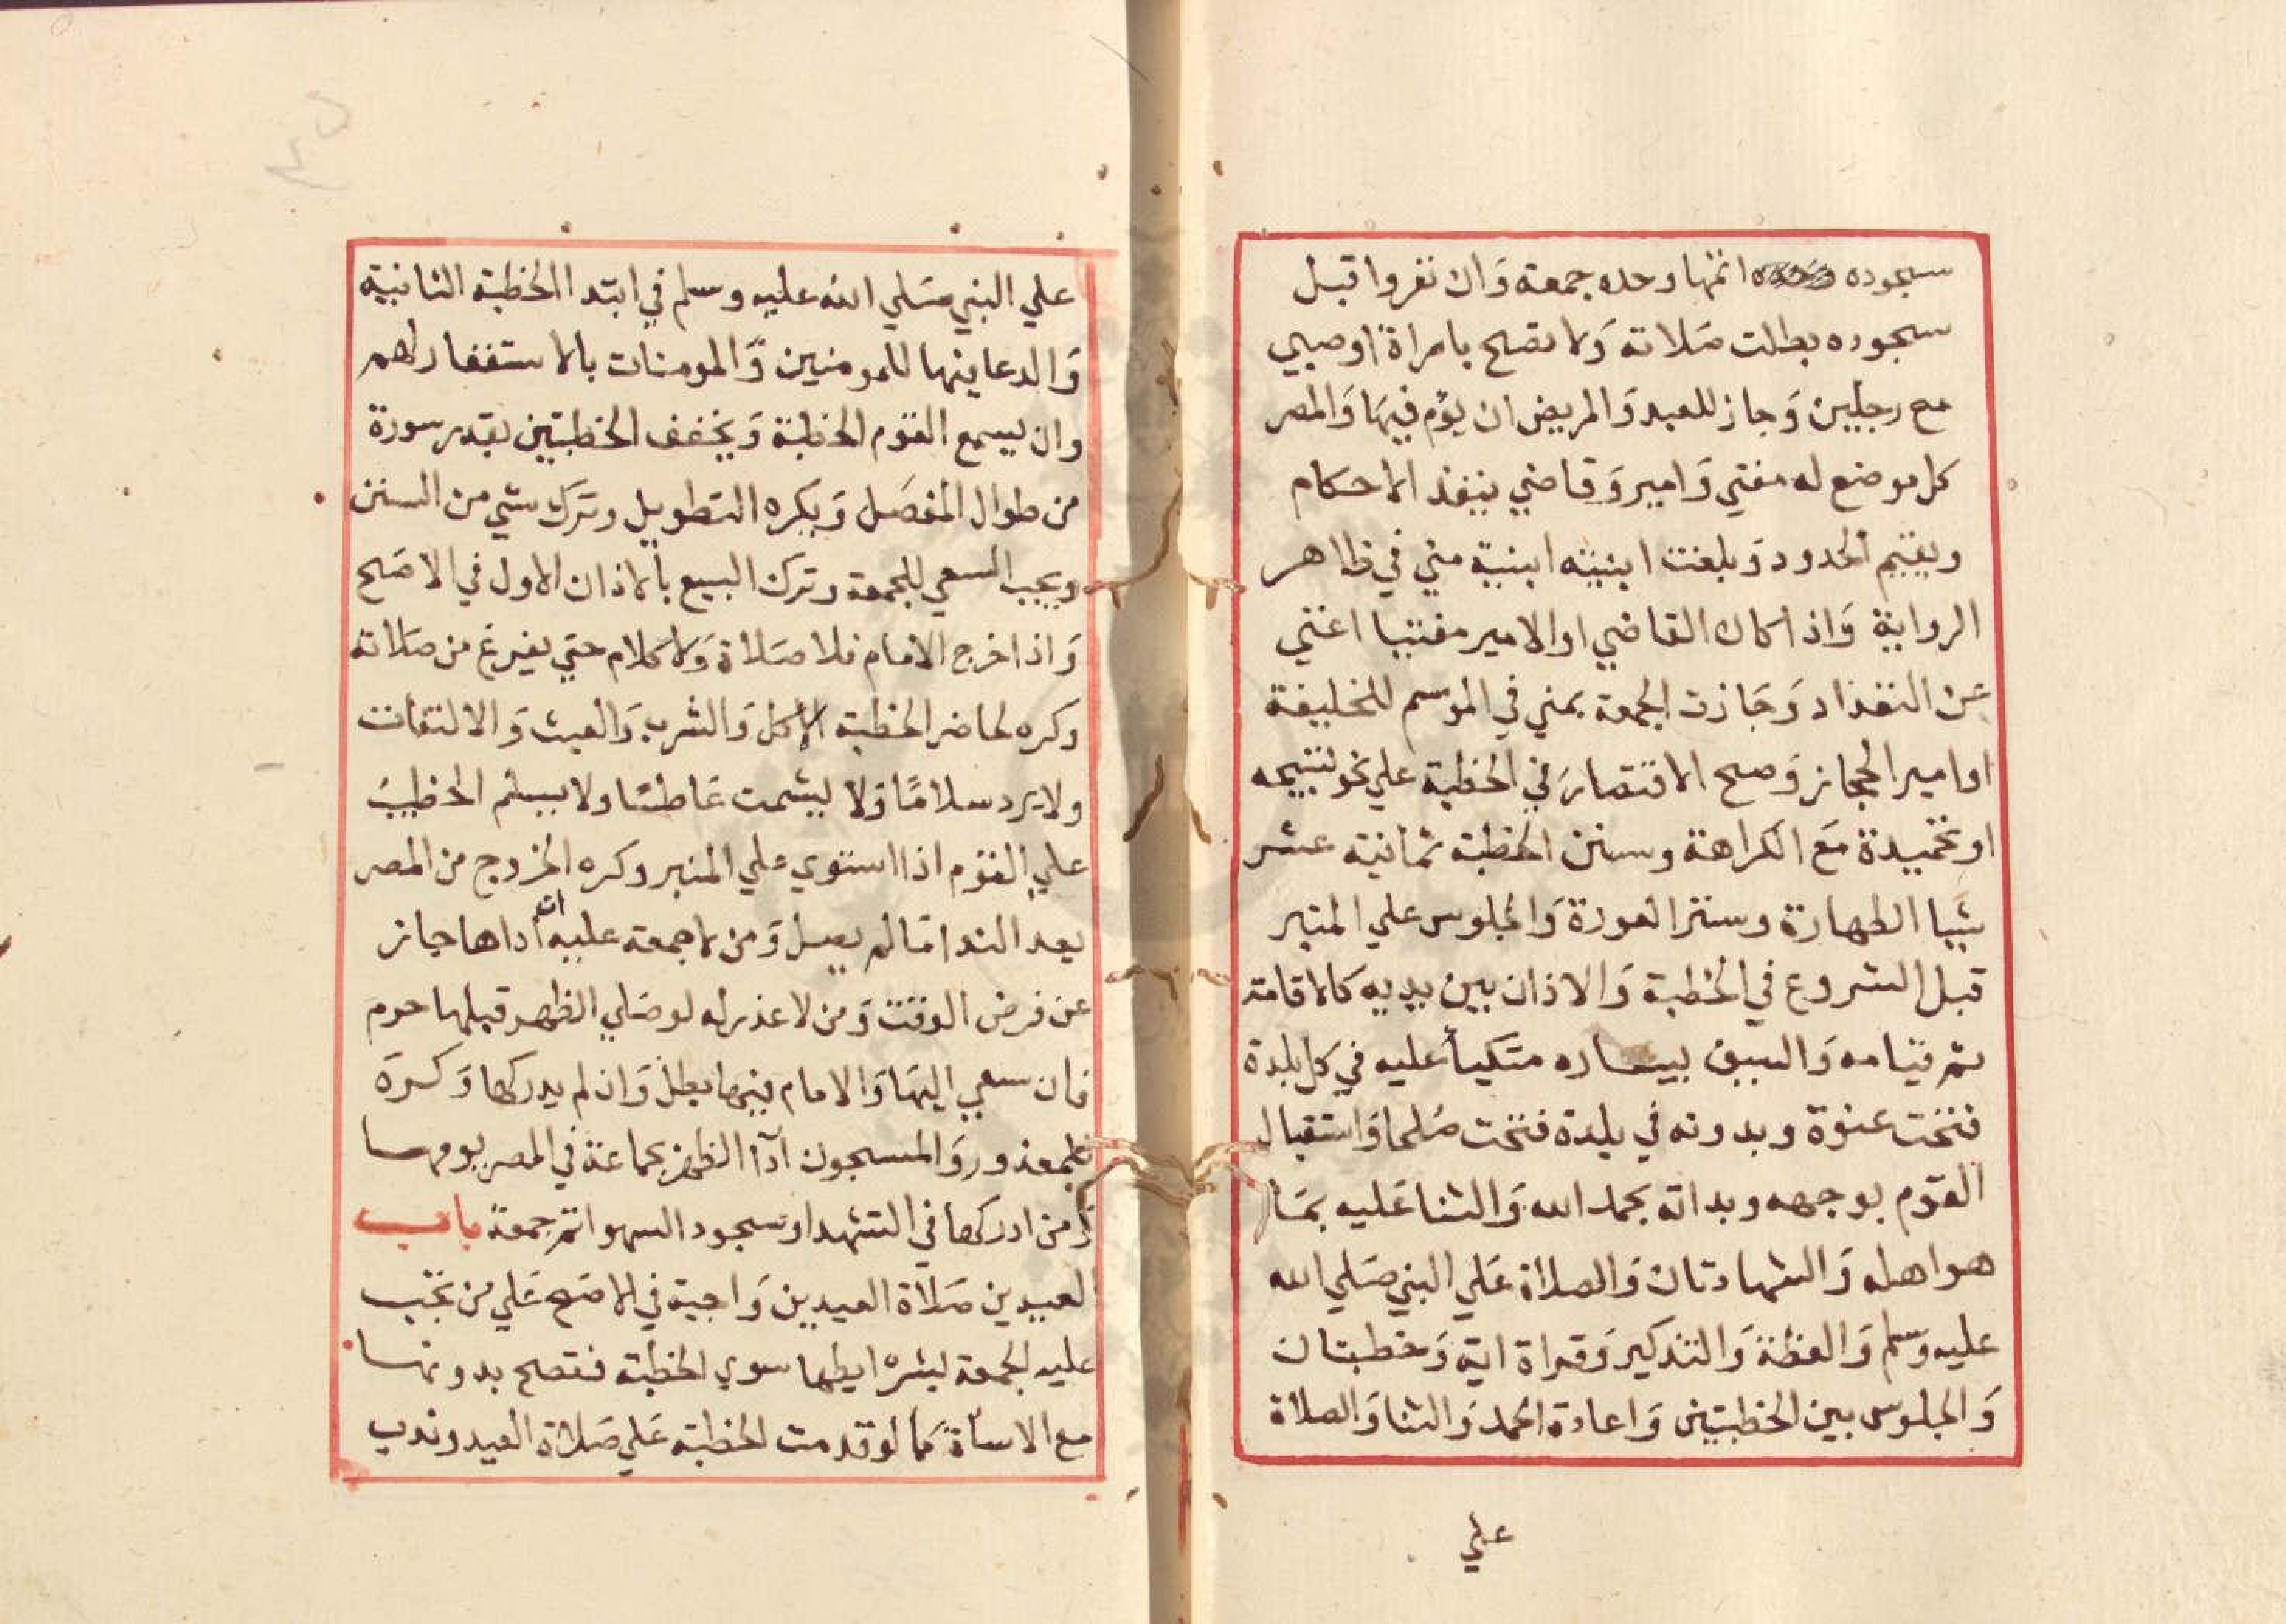 سجوده اتمها وحده جمعة وَان نفروا قبل
سجوده بطلت صَلاته وَلا تصح بامراة اوصبي
مع رجلين وَجاز للعبد وَالمريض ان يؤم فيهَا وَالمصر
كل موضع له مفتي وَامير وَقاضي ينفذ الاحكام
ويقيم الحدود وَبلغت ابنيته ابنية مني في ظاهر
الرواية وَاذا كان القاضي اوالامير مفتيا اغني
عن التعداد وَجَازت الجمعة بمني في الموسم للخليفة
اوامير الحجاز وَصح الاقتصارَ في الخطبة علي نحو تسبيحه
اوتحميدة مَع الكراهة وسنن الخطبة ثمانية عشر
شيا الطهارة وستر العورة وَالجلوس علي المنبر
قبل الشروع في الخطبة وَالاذان بين يديه كالاقامة
ثم قيامه وَالسيف بيساره متكيأ عليه في كل بلدة
فتحت عنوة وبدونه في بلدة فتحت صُلحا وَاستقبال
القوم بوجهه وبداته بحمد الله وَالثنا عَليه بمَا
هواهله وَالشهادتان وَالصلاة عَلي النبي صَلي الله
عليه وَسلم وَالعظة وَالتذكير وَقراة اية وَخطبتان
وَالجلوس بين الخطبتين وَاعادة الحمد وَالثنا وَالصلاة
علي
علي النبي صَلي الله عليه وسلم في ابتدا الخطبة الثانية
وَالدعا فيها للمومنين وَالمومنات بالاستغفار لهم
وان يسمع القوم الخطبة وَيخفف الخطبتين بقدر سورة
من طوال المفصَل وَيكره التطويل وترك شي من السنن
ويجب السعي للجمعة وترك البيع بالاذان الاول في الاصَح
وَاذا خرج الامام فلا صَلاة وَلا كلام حتي يفرغ من صَلاته
وكره لحاضر الخطبة الاكل وَالشرب وَالعبث وَالالتفات
ولا يرد سلامًا وَلا يشمت عَاطسًا ولا يسلم الخطيب
علي القوم اذا استوي علي المنبر وكره الخروج من المصر
بعد الندا مَا لم يصل وَمن لا جمعة عليه ان اداها جاز
عن فرض الوقت وَمن لا عذر له لو صَلي الظهر قبلها حرم
فان سعي اليهَا وَالامام فيها بطل وَان لم يدركها وَكره
للمعذور وَالمسجون ادآ الظهر بجماعة في المصر يومها
وَمن ادركها في التشهد او سجود السهو اتم جمعة باب
العيدين صَلاة العيدين وَاجبة في الاصَح عَلي من تجب
عليه الجمعة بشرايطها سوي الخطبة فتصح بدونها
مع الاسأة كما لو قدمت الخطبة عَلي صَلاة العيد وندب